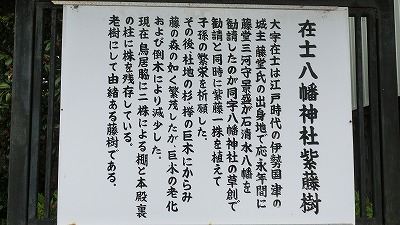 在士八幡神社紫藤樹
大字在士は江戸時代の伊勢国津の
城主藤堂氏の出身地で応永年間に
藤堂三河守景盛が石清水八幡を
勧請したのが同字八幡神社の草創で
勧請と同時に紫藤一株を植えて
子孫の繁栄を祈願した。
その後社地の杉欅の巨木にからみ
藤の森の如く繁茂したが巨木の老化
および倒木により減少した。
現在鳥居脇に二株による棚と本殿裏
の柱に株を残存している。
老樹にして由緒ある藤樹である。